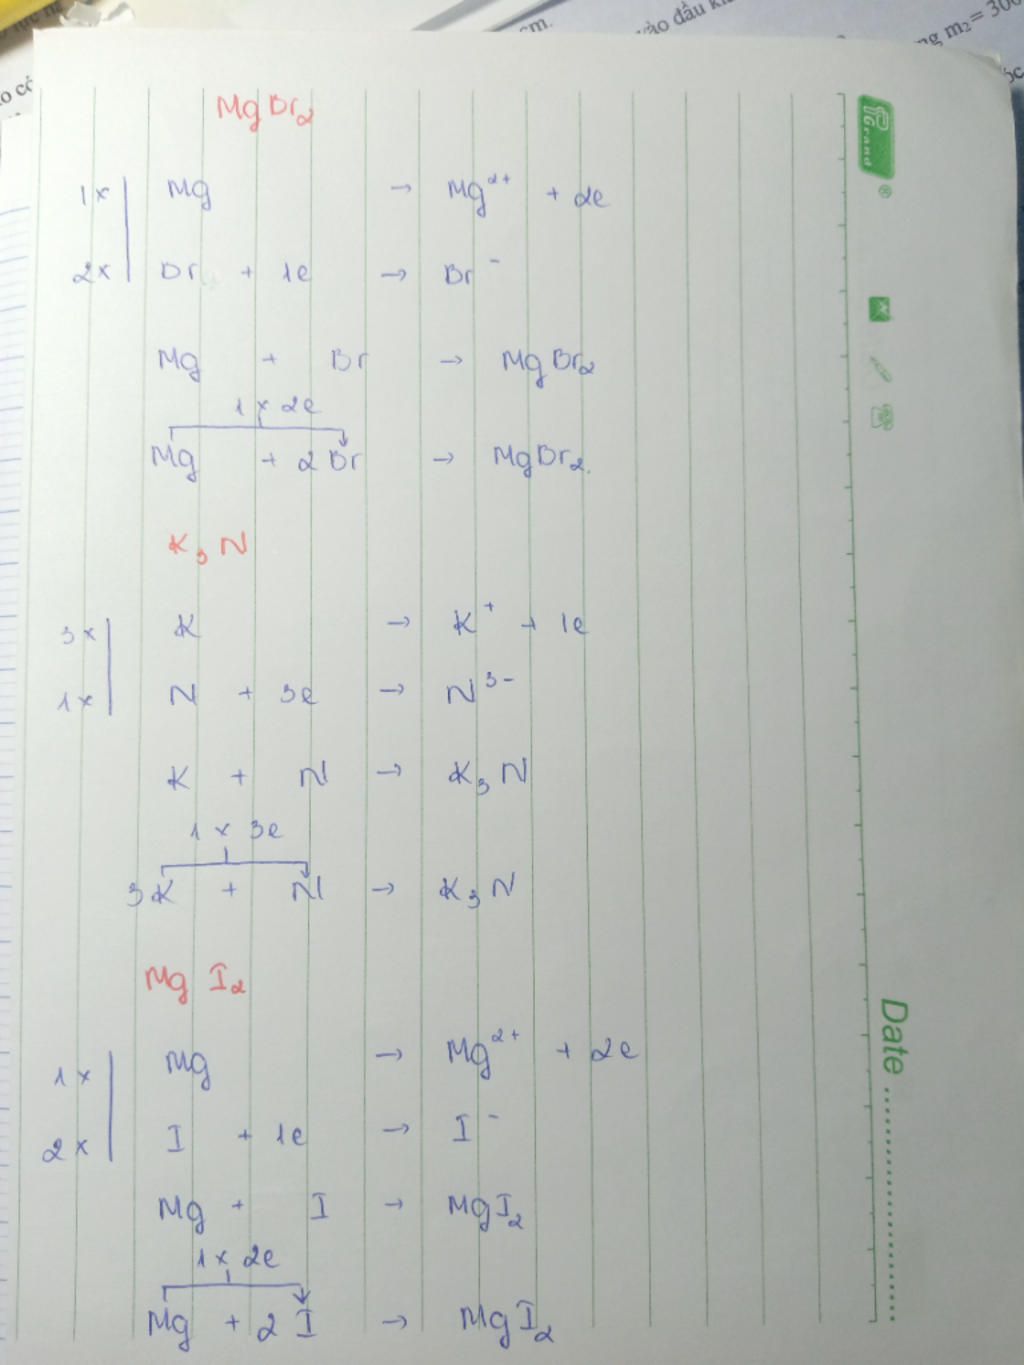 cm.
vào đầu k
ng m₂ = 300
MgBr₂
1x | Mg → Mg²⁺ + 2e
2x | Br + 1e → Br⁻
Mg + Br → MgBr₂
1 x 2e
Mg + 2 Br → MgBr₂.
K₃N
3x | K → K⁺ + 1e
1x | N + 3e → N³⁻
K + N → K₃N
1 x 3e
3K + N → K₃N
Mg I₂
1x | Mg → Mg²⁺ + 2e
2x | I + 1e → I⁻
Mg + I → MgI₂
1 x 2e
Mg + 2 I → MgI₂
Grand
®
Date